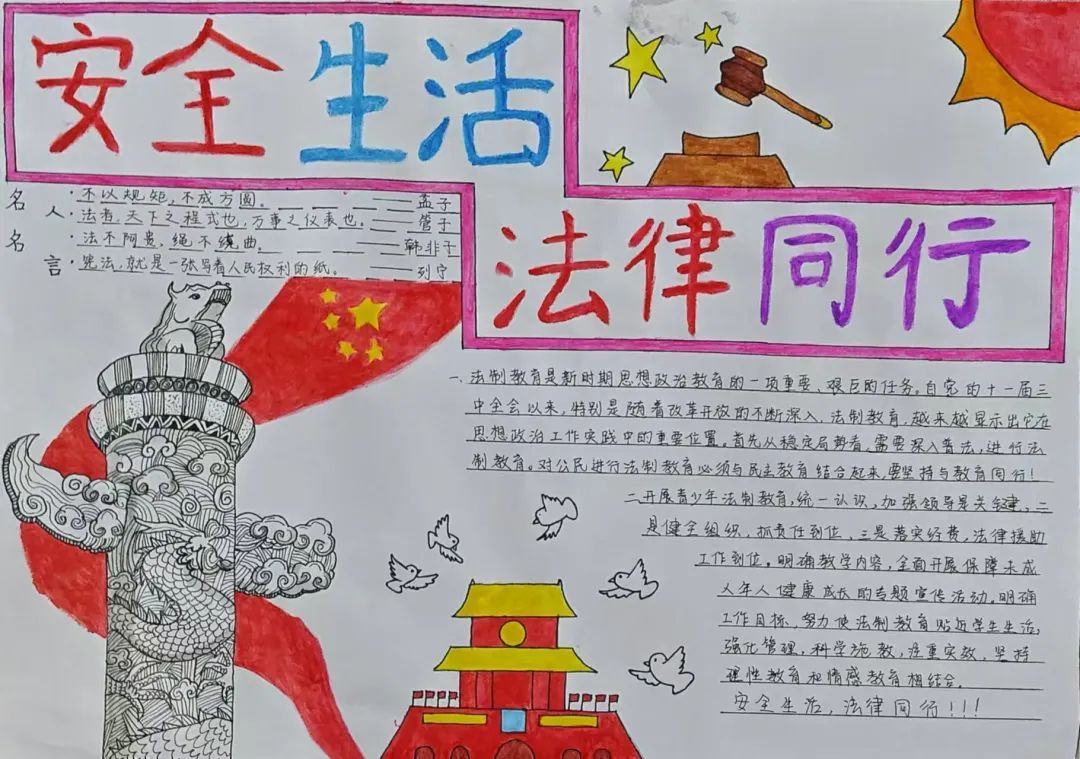 安全生活
法律同行
名人名言
·不以规矩,不成方圆。——孟子
·法者,天下之程式也,万事之仪表也。——管子
·法不阿贵,绳不绕曲。——韩非子
·宪法,就是一张写着人民权利的纸。——列宁
一、法制教育是新时期思想政治教育的一项重要、艰巨的任务。自党的十一届三
中全会以来,特别是随着改革开放的不断深入,法制教育,越来越显示出它在
思想政治工作实践中的重要位置。首先从稳定局势看,需要深入普法,进行法
制教育。对公民进行法制教育必须与民主教育结合起来,要坚持与教育同行!
二.开展青少年法制教育,统一认识,加强领导是关键,二
是健全组织,抓责任到位、三是落实经费,法律援助
工作到位。明确教学内容,全面开展保障未成
年人健康成长的专题宣传活动。明确
工作目标,努力使法制教育贴近学生生活,
强化管理,科学施教,注重实效,坚持
理性教育和情感教育相结合。
安全生活,法律同行!!!